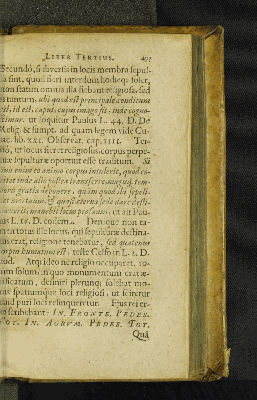 LIBER TERTIUS. 491
Secundò, si diversis in locis membra sepul-
ta sint, quod fieri interdum hodieq; solet,
non statim omnia illa fiebant religiosa, sed
is tantum, ubi quod est principale conditum
est, id est, caput, cujus imago fit, inde cogno-
scimur. ut loquitur Paulus L. 44. D. De
Relig. & sumpt. ad quam legem vide Cu-
jac. lib. XXI. Observat. cap. IIII. Ter-
tiò, ut locus fieret religiosus, corpus perpe-
tuæ sepulturæ oportuit esse traditum. Si
enim eo animo corpus intulerit, quod co-
gitet inde aliò postea transferre, magisq; tem-
poris gratia deponere, quàm quod illic sepeli-
ret mortuum, & quasi æterna sede dare desti-
naverit; manebit locus profanus, ut ait Pau-
lus L. 40. D. eodem. Denique non ta-
men totus ille locus, qui sepulturæ destina-
tus erat, religione tenebatur, sed quatenus
corpus humatum est, teste Celso in L. 2. D.
eod. Atq; ideo ne religio occuparet, to-
tum solum, in quo monumentum erat æ-
dificatum, definiri plerunq; solebat mo-
dus spatiumque loci religiosi, ut sciretur
quid puri loci relinqueretur. Ejus rei er-
go scribebant: IN. FRONTE. PEDES.
TOT. IN. AGRUM. PEDES. TOT.
Quâ